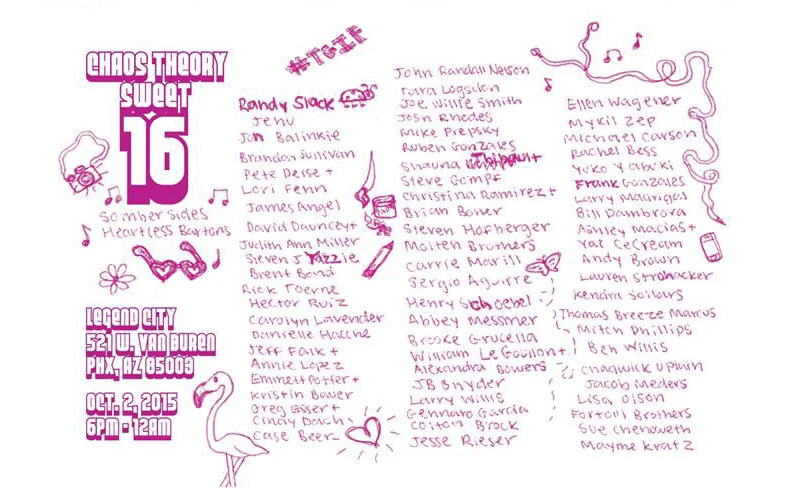 CHAOS THEORY
SWEET
16
Somber Sides
Heartless Bastons
LEGEND CITY
521 W. VAN BUREN
PHX, AZ 85003
OCT. 2, 2015
6PM - 12AM
#TGIF
Randy Slack
Jenu
Jon Balinkie
Brandon Sullivan
Pete Deise +
Lori Fenn
James Angel
David Dauncey+
Judith Ann Miller
Steven J Yazzie
Brent Bond
Rick Toerne
Hector Ruiz
Carolyn Lavender
Danielle Hacche
Jeff Falk +
Annie Lopez
Emmett Potter +
Kristin Bauer
Greg Esser +
Cindy Dach
Case Beer
John Randall Nelson
Tara Logsdon
Joe Willie Smith
Josh Rhodes
Mike Prepsky
Ruben Gonzales
Shawna Thibault
Steve Gompf
Christina Ramirez +
Brian Boner
Steven Hofberger
Molten Brothers
Carrie Marill
Sergio Aguirre
Henry Schoebel
Abbey Messmer
Brooke Grucella
William LeGoullon+
Alexandra Bowers
JB Snyder
Larry Willis
Gennaro Garcia
Colton Brock
Jesse Rieser
Ellen Wagener
Mykil Zep
Michael Carson
Rachel Bess
Yuko Yabuki
Frank Gonzales
Larry Madrigal
Bill Dambrova
Ashley Macias +
Yai CeCream
Andy Brown
Lauren Strohacker
Kendra Sollars
Thomas Breeze Marcus
Mitch Phillips
Ben Willis
Chadwick Uptain
Jacob Meders
Lisa Olson
Fortoul Brothers
Sue Chenoweth
Mayme Kratz